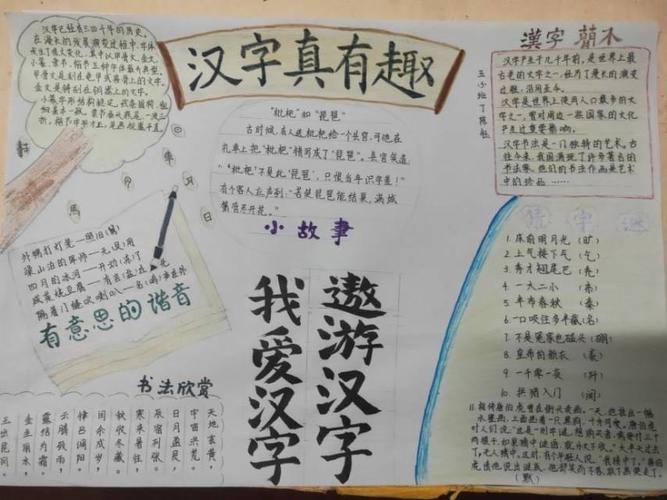 汉字已经有三四千年的历史。
在漫长的发展演变过程中,字体
小篆、隶书、楷书三种体最为典型。
甲骨文是刻在龟甲或兽骨上的文字。
金文是铸刻在铜器上的文字。
汉字真有趣
"枇杷"和"琵琶"
古时候,有人送枇杷给一个县官,可他在
礼单上把"枇杷"错写成了"琵琶"。县官笑道:
"'枇杷'不是此'琵琶',只恨当年识字差!"
有个客人应声道:"若使琵琶能结果,满城
箫管尽开花。"
小故事
漢字簡介
汉字产生于几千年前,是世界上最
古老的文字之一,经历了漫长的演变
过程,沿用至今。
汉字是世界上使用人口最多的文
字之一,曾对周边一些国家的文化
产生过重要影响。
汉字书法是一门独特的艺术。古
往今来,我国涌现了许多著名的
书法家,他们的书法作品是艺术
中的珍品……
外甥打灯笼——照旧(舅)
梁山泊的军师——无(吴)用
四月的冰河——开动(冻)了
隔着门缝吹喇叭——名(鸣)声在外
有意思的谐音
猜字谜
1. 床前明月光(旷)
2. 上气接下气(乞)
3. 秀才翘尾巴(秃)
4. 一大二小(奈)
5. 半布春秋(秦)
6. 一口咬住多半截(名)
7. 不是冤家也碰头(硼)
8. 皇帝的新衣(袭)
9. 一千零一夜(歼)
10. 拱猪入门(阂)
遨游汉字
我爱汉字
书法欣赏
天地玄黄
宇宙洪荒
日月盈昃
辰宿列张
寒来暑往
秋收冬藏
闰余成岁
律吕调阳
云腾致雨
露结为霜
金生丽水
玉出昆冈